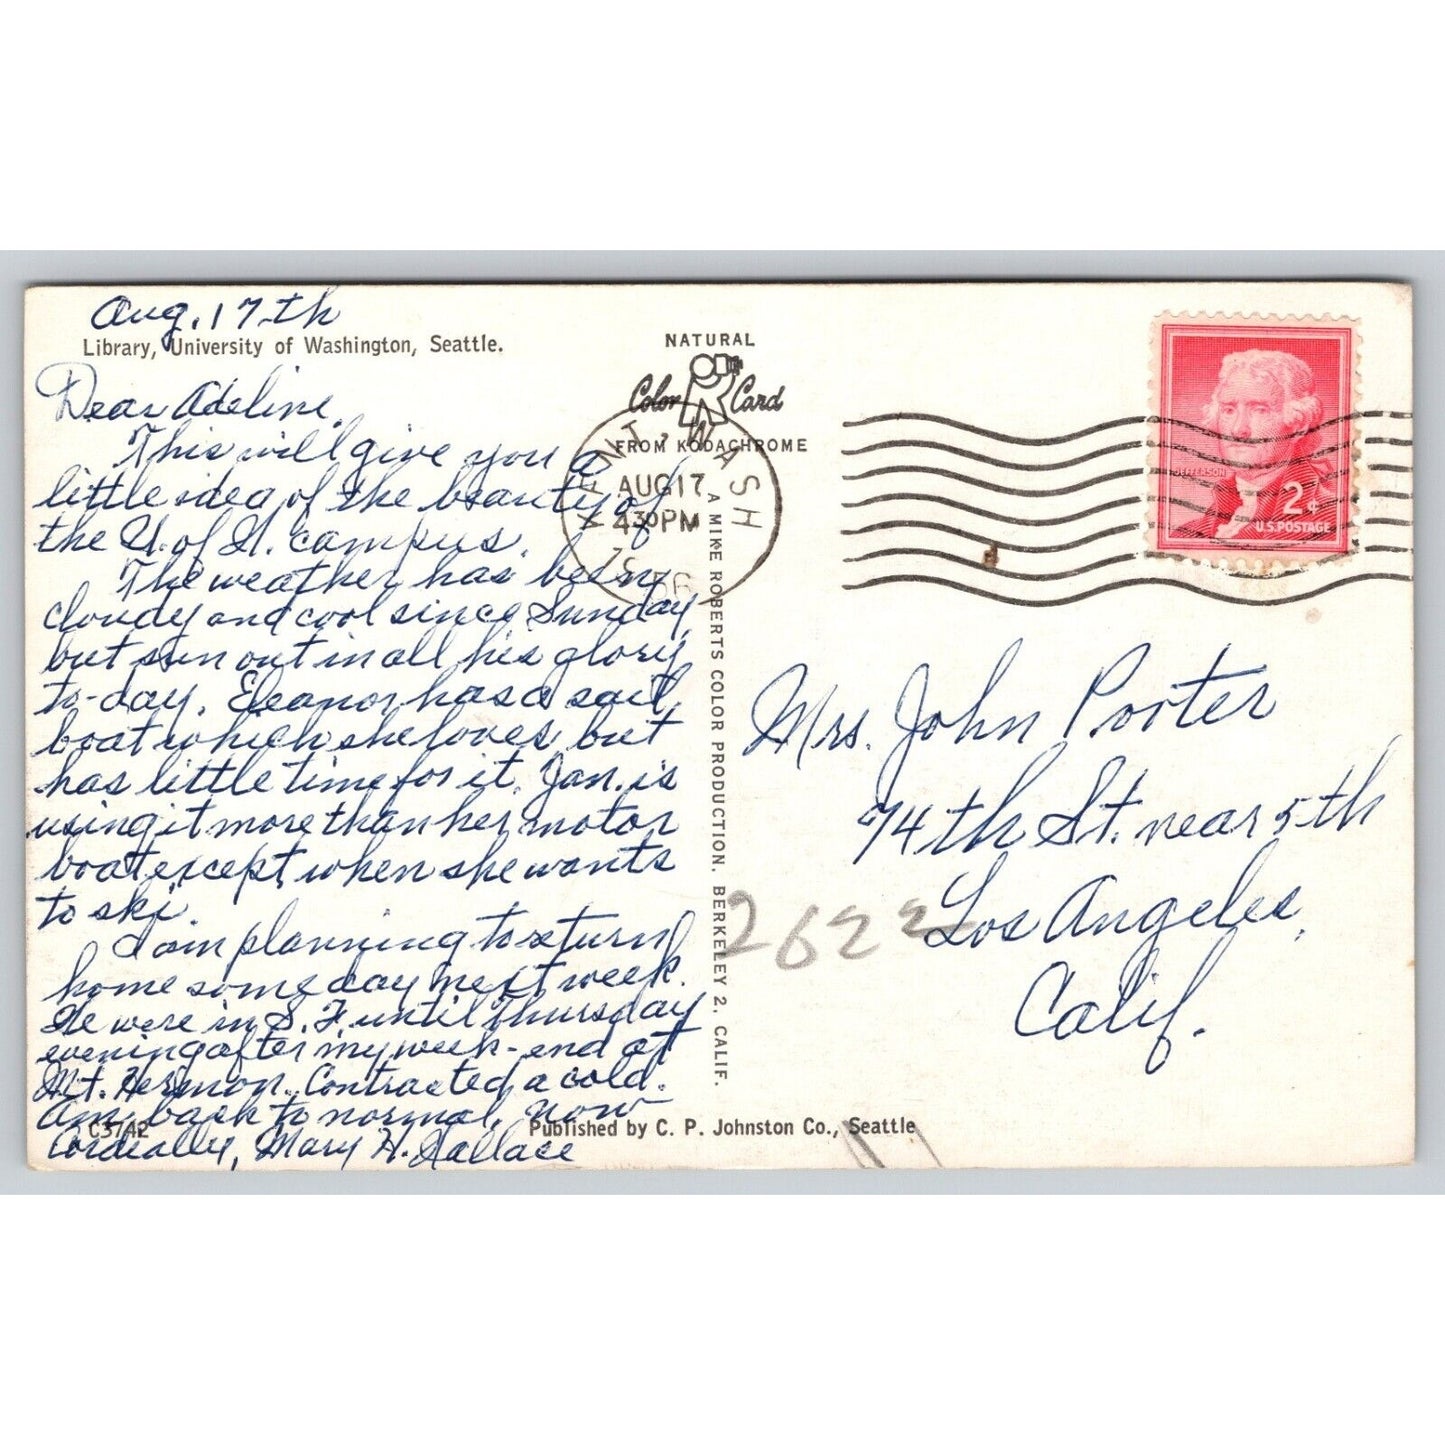 Aug. 17th
Library, University of Washington, Seattle.
Dear Adeline,
This will give you a
little idea of the beauty of
the U. of W. campus.
The weather has been
cloudy and cool since Sunday,
but sun out in all his glory
to-day. Eleanor has a sail
boat which she loves but
has little time for it. Jan. is
using it more than her motor
boat except when she wants
to ski.
I am planning to return
home some day next week.
We were in S. F. until Thursday
evening after my week-end at
Mt. Hermon. Contracted a cold.
Am back to normal, now
Cordially, Mary H. Wallace
C3742
NATURAL
Color Card
FROM KODACHROME
KENT, WASH
AUG 17
430PM
1956
A MIKE ROBERTS COLOR PRODUCTION. BERKELEY 2, CALIF.
JEFFERSON
2¢
U.S. POSTAGE
Mrs. John Porter
74th St. near 5th
Los Angeles,
Calif.
2622
Published by C. P. Johnston Co., Seattle